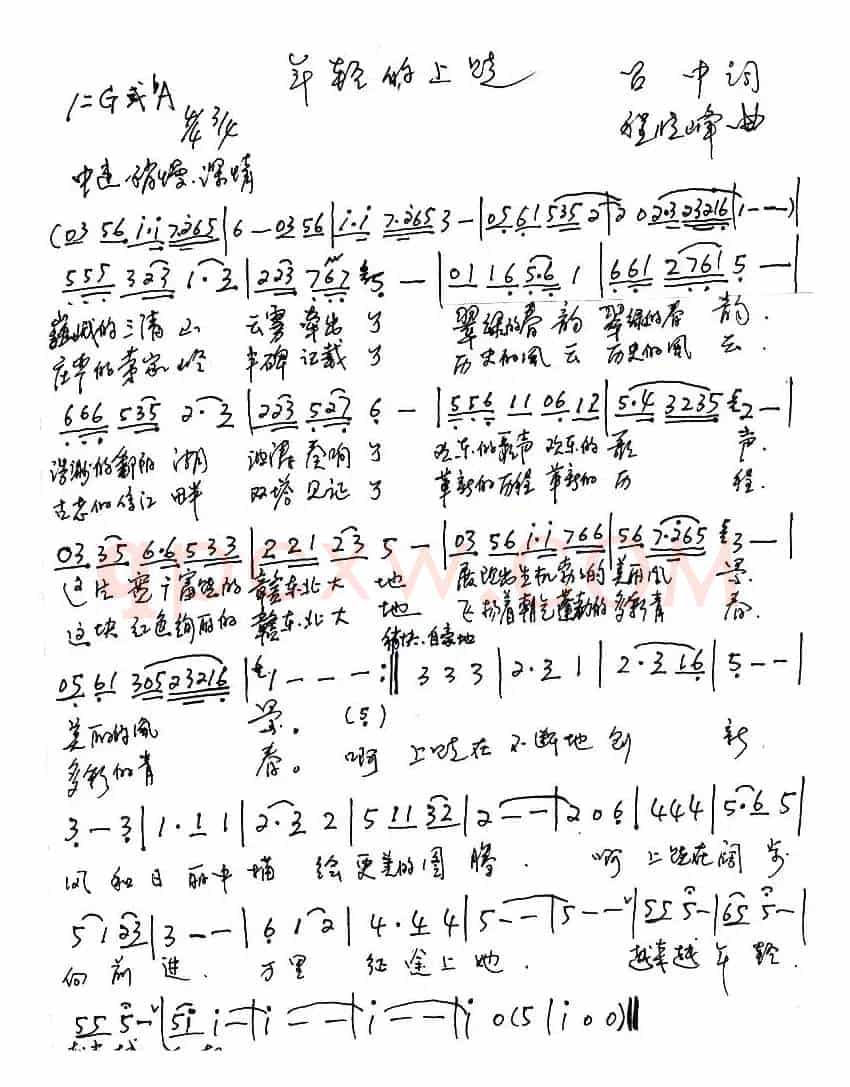 年轻的上饶
吕中词
1=G或♭A 4/4 3/4
程晓峰曲
中速 稍慢 深情
(03 56 i·i 7·265 | 6 - 03 56 | i·i 7·265 3 - | 0561 535 2 | 2 0 2·323216 | 1 - - )
555 323 1·3 | 223 767 5 - | 01 16 5·6 1 | 661 2761 5 - |
巍峨的三清山 云雾牵出了 翠绿的春韵 翠绿的春韵.
庄严的 家岭 丰碑记载了 历史的风云 历史的风云.
666 535 2·3 | 223 527 6 - | 556 11 06 12 | 5·4 3235 2 - |
浩渺的鄱阳湖 波涛奏响了 欢乐的歌声 欢乐的歌声.
古老的信江畔 双塔见证了 革新的历程 革新的历程.
03 35 6·6 533 | 221 23 5 - | 03 56 i·i 766 | 56 7·265 3 - |
这片宽 富饶的赣东北大地 展现出生机 的美丽风景.
这块红色绚丽的赣东北大地 飞扬着朝气蓬勃的多彩青春.
稍快.自豪地
05 61 30523216 | 1 - - - :‖ 3 3 3 | 2·3 1 | 2·3 16 | 5 - - |
美丽的风景。 (5)
多彩的青春。 啊 上饶在不断地创新
3 - 3 | 1·1 1 | 2·3 2 | 5 11 32 | 2 - - | 2 0 6 | 4 4 4 | 5·6 5 |
风和日丽中描绘更美的图腾. 啊 上饶在阔步
5 1 23 | 3 - - | 6 1 2 | 4·4 4 | 5 - - | 5 - - | 55 5 - | 65 5 - |
向前进. 万里征途上她. 越走越年轻.
55 5 - | 5i i - | i - - | i - - | i 0 (5 | i 0 0) ‖